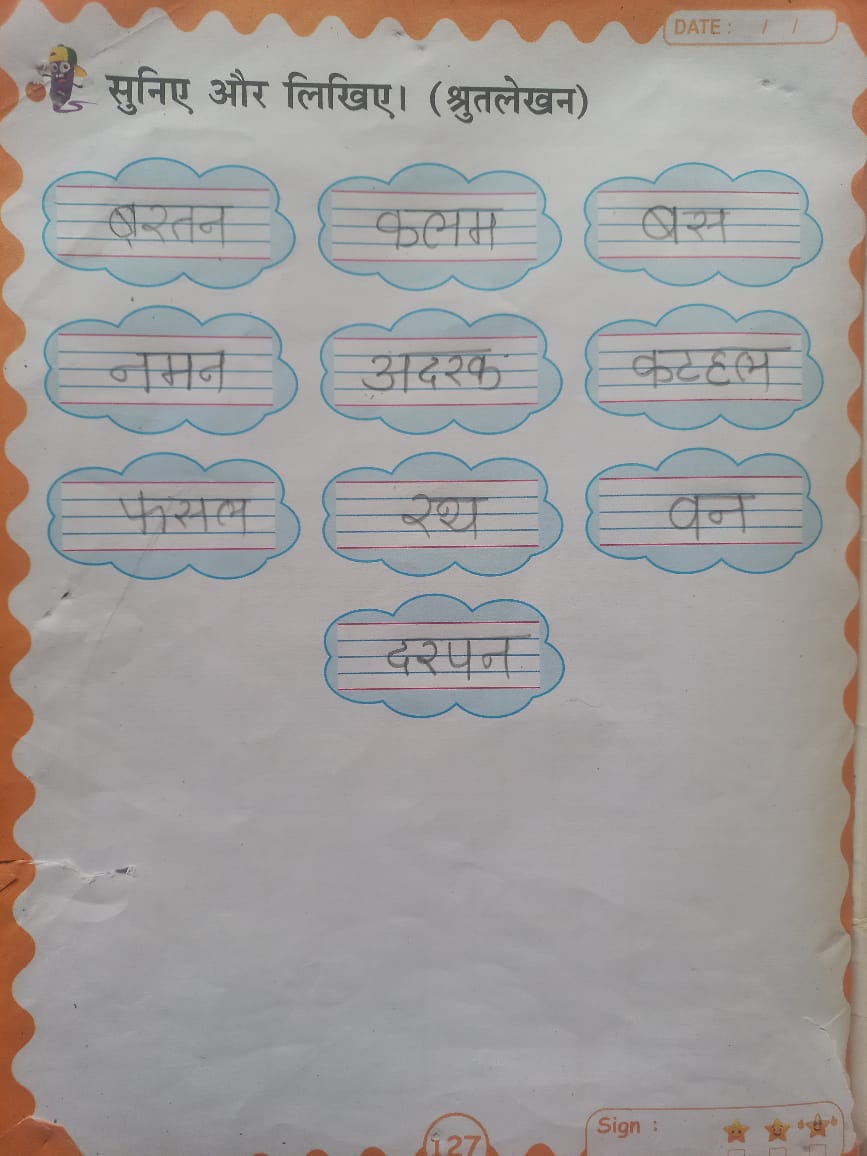 DATE : / /
सुनिए और लिखिए। (श्रुतलेखन)
बरतन कलम बस
नमन अदरक कटहल
फसल रथ वन
दरपन
Sign :
127